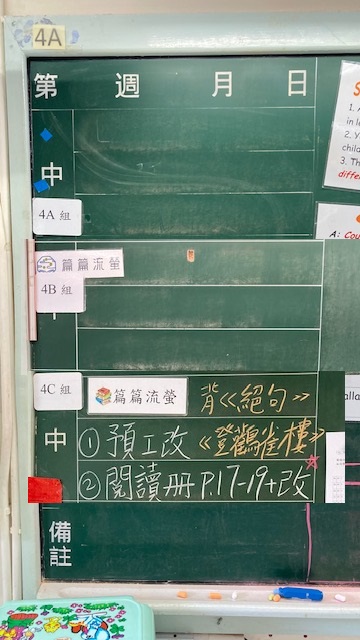 4A
第 週 月 日
中
4A 組
篇篇流螢
4B 組
4C 組
篇篇流螢
背《絕句》
中
①預工改《登鸛雀樓》
②閱讀冊 P.17-19+改
備註
1. A
in le
2. Y
child
3. Th
diffe
A: Cou